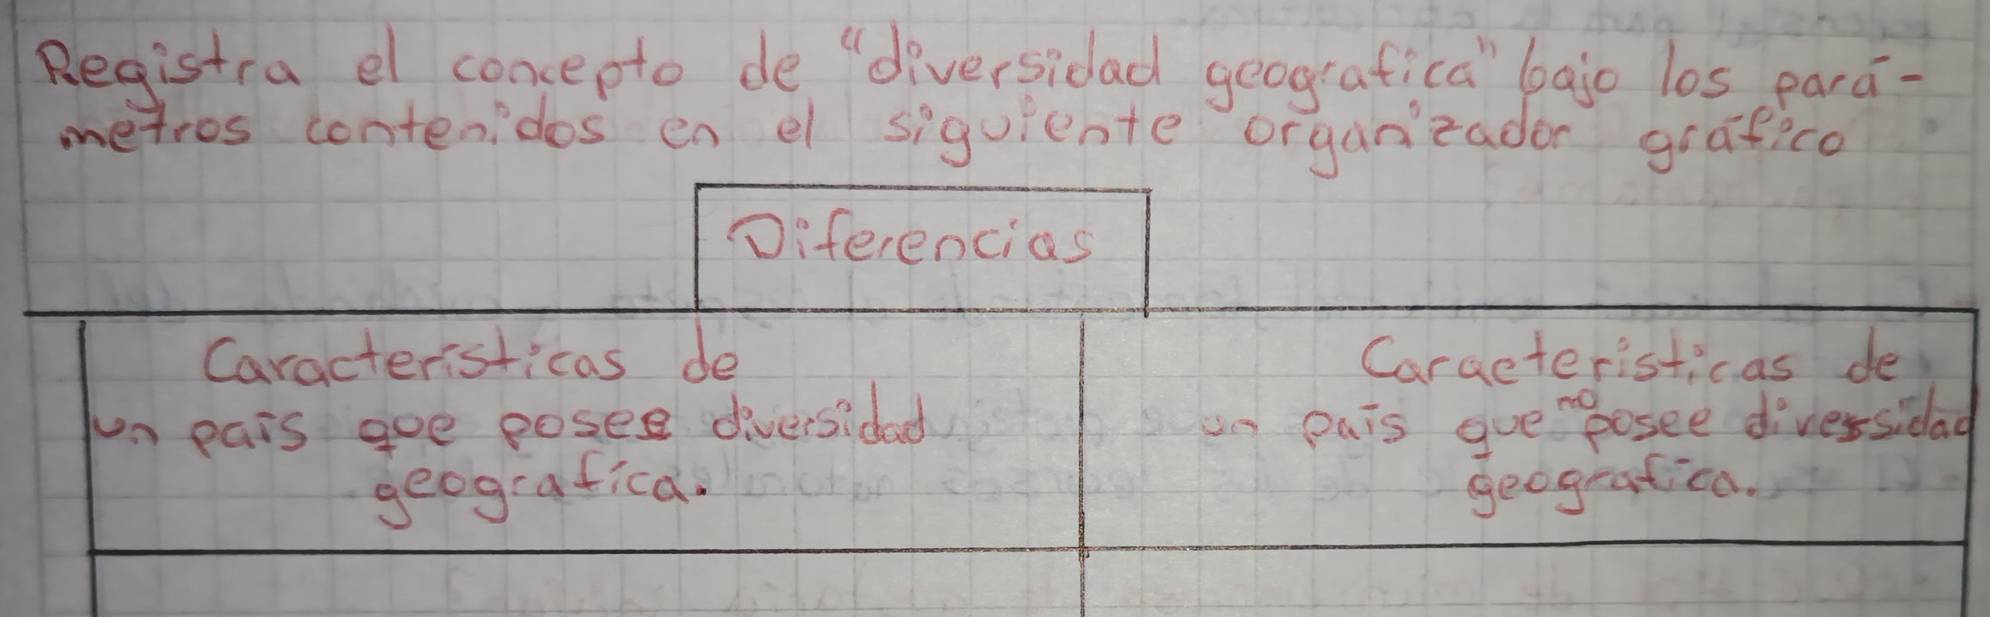 Registra el concepto de "diversidad geografica" bajo los pará-
metros contenidos en el siguiente organizador gráfico
Diferencias
Caracteristicas de
un país que posee diversidad
geografica.
Caracteristicas de
un país que no posee diversidad
geografica.